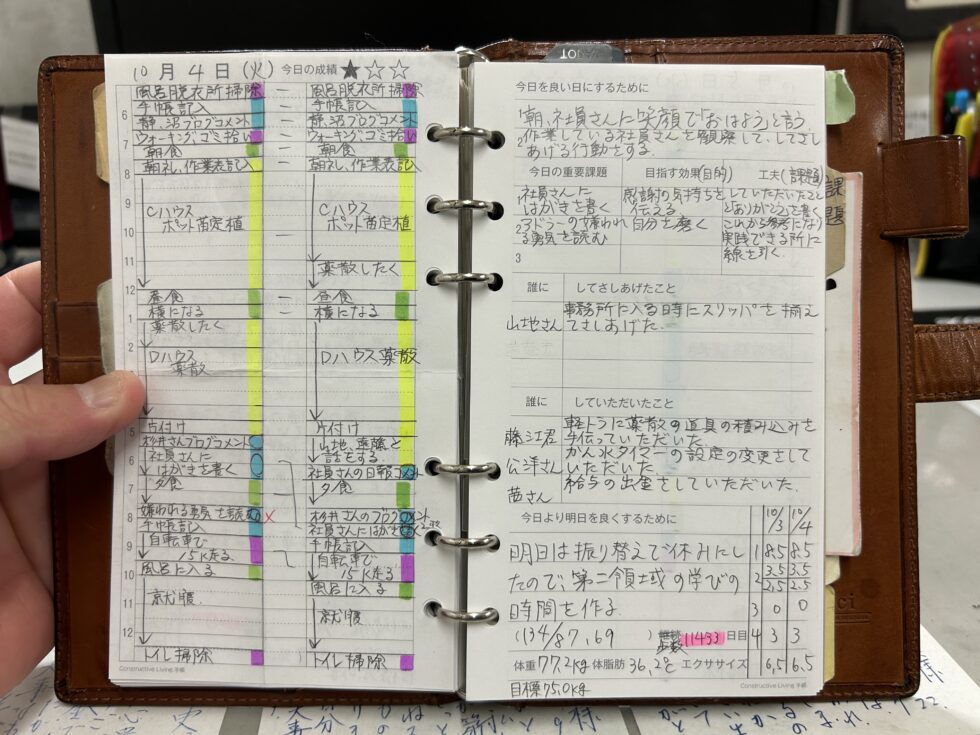 10月4日(火) 今日の成績 ★☆☆
風呂脱衣所掃除 — 風呂脱衣所掃除
6 手帳記入 — 手帳記入
静、沼ブログコメント — 静、沼ブログコメント
7 ウォーキング、ゴミ拾い — ウォーキング、ゴミ拾い
朝食 — 朝食
8 朝礼、作業表記入 — 朝礼、作業表記入
9
Cハウス Cハウス
10 ポット苗定植 — ポット苗定植
11
薬散したく
12 昼食 — 昼食
横になる — 横になる
1 薬散したく
2 Dハウス Dハウス薬散
薬散
5 片付け 片付け
杉井さんブログコメント 山地、遠藤と
社員さんに 話をする
6 はがきを書く 社員さんの日報コメント
7 夕食 夕食
嫌われる勇気を読む × 杉井さんのブログコメント
8 手帳記入 社員さんにはがき書く
自転車で 手帳記入
9 15K走る 自転車で
15K走る
10 風呂に入る 風呂に入る
11 就寝 就寝
12
トイレ掃除 トイレ掃除
Constructive Living 手帳
10
今日を良い日にするために
「朝、社員さんに笑顔で「おはよう」と言う
作業している社員さんを観察して、してさし
あげる行動をする。
今日の重要課題 目指す効果(目的) 工夫(課題)
社員さんに 感謝の気持ちを していただいたこと
はがきを書く 伝える 「ありがとう」を書く
2 アドラーの嫌われ 自分を磨く これから参考になり
る勇気を読む 実践できる所に
3 線を引く
課題
誰に してさしあげたこと
事務所に入る時にスリッパを揃え
山地さん てさしあげた.
誰に していただいたこと
軽トラに薬散の道具の積み込みを
藤江君 手伝っていただいた.
かん水タイマーの設定の変更をして
公洋さん いただいた.
茜さん 給与の出金をしていただいた.
今日より明日を良くするために 10/3 10/4
明日は振り替えで休みにし 1 8.5 8.5
たので、第二領域の学びの 2 3.5 3.5
2.5 2.5
時間を作る 3 0 0
(134/87, 69 ) 歩数 11433 日目 4 3 3
体重 77.2kg 体脂肪 36.2℃ エクササイズ 16.5 16.5
目標75.0kg
Constructive Living 手帳